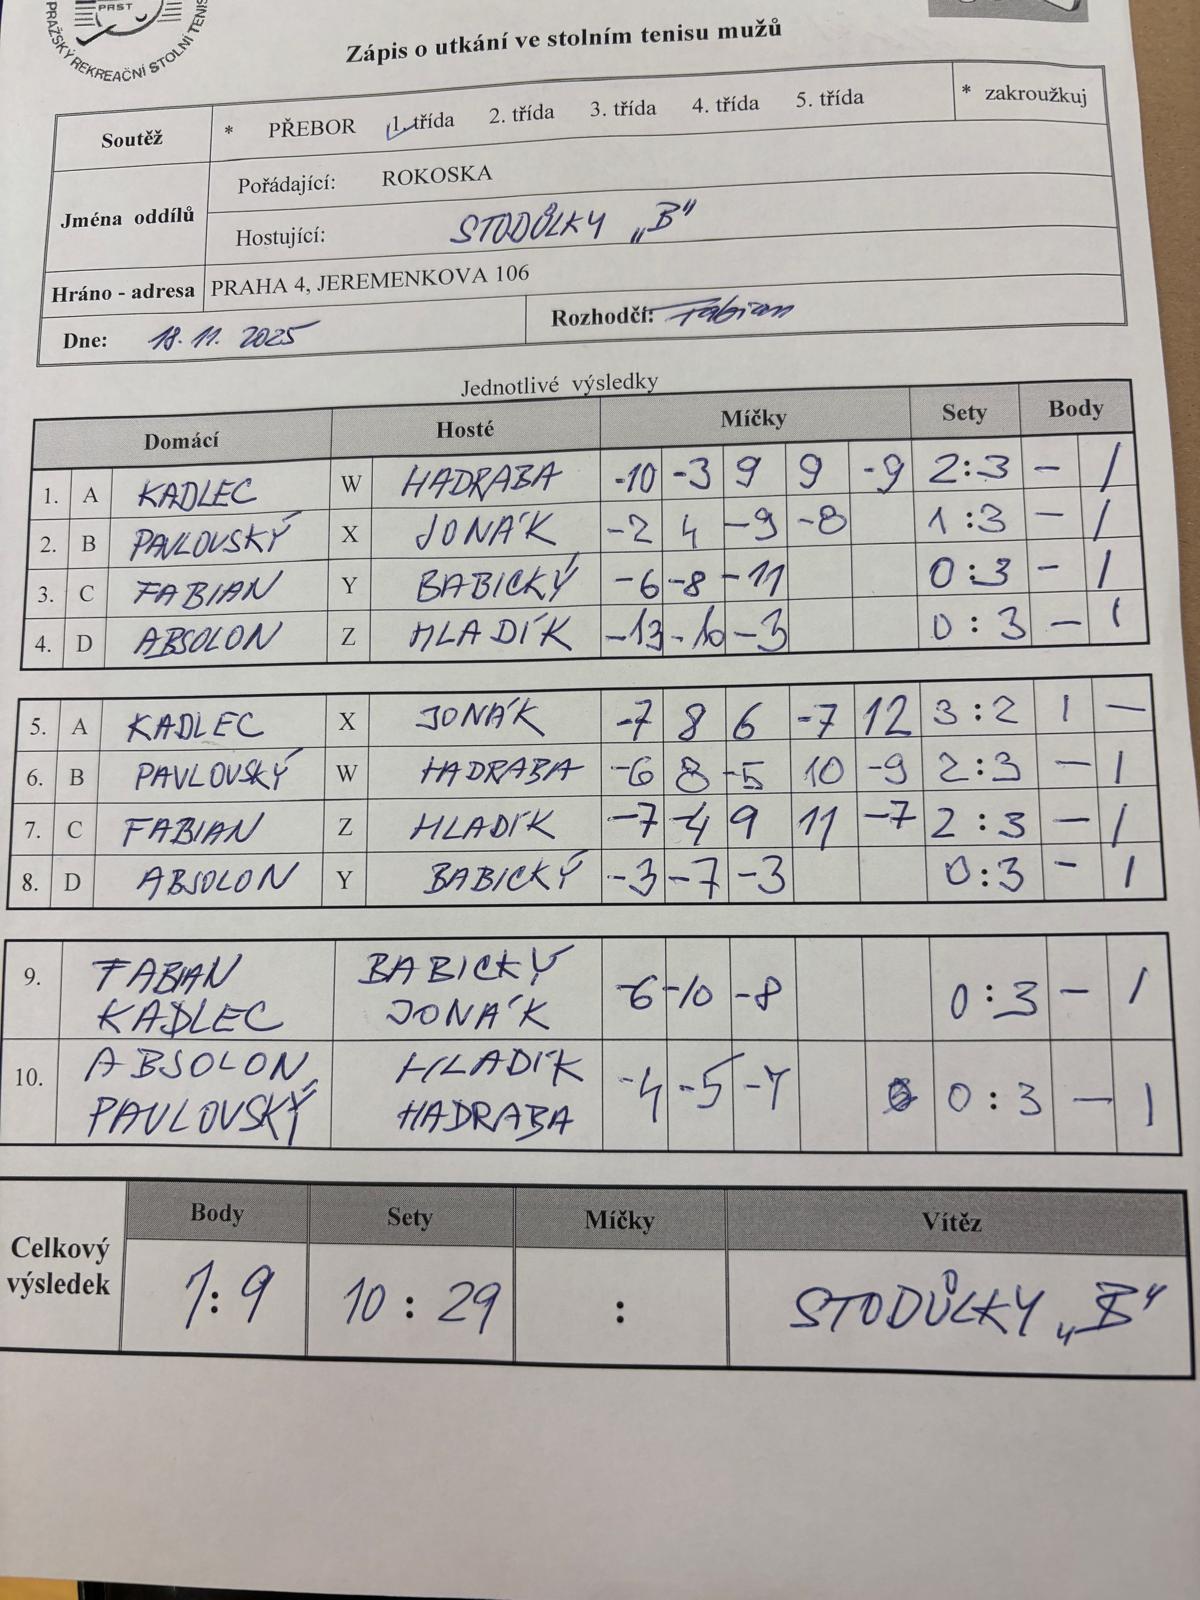 PRST
PRAŽSKÝ REKREAČNÍ STOLNÍ TENIS
Zápis o utkání ve stolním tenisu mužů
Soutěž * PŘEBOR 1. třída 2. třída 3. třída 4. třída 5. třída * zakroužkuj
Jména oddílů
Pořádající: ROKOSKA
Hostující: STODŮLKY „B"
Hráno - adresa PRAHA 4, JEREMENKOVA 106
Dne: 18. 11. 2025 Rozhodčí: Fabian
Jednotlivé výsledky
Domácí Hosté Míčky Sety Body
1. A KADLEC W HADRABA -10 -3 9 9 -9 2:3 - 1
2. B PAVLOVSKÝ X JONÁK -2 4 -9 -8 1:3 - 1
3. C FABIAN Y BABICKÝ -6 -8 -11 0:3 - 1
4. D ABSOLON Z HLADÍK -13 -10 -3 0:3 - 1
5. A KADLEC X JONÁK -7 8 6 -7 12 3:2 1 -
6. B PAVLOVSKÝ W HADRABA -6 8 -5 10 -9 2:3 - 1
7. C FABIAN Z HLADÍK -7 -4 9 11 -7 2:3 - 1
8. D ABSOLON Y BABICKÝ -3 -7 -3 0:3 - 1
9. FABIAN BABICKÝ -6 -10 -8 0:3 - 1
KADLEC JONÁK
10. ABSOLON HLADÍK -4 -5 -7 0:3 - 1
PAVLOVSKÝ HADRABA
Celkový výsledek
Body Sety Míčky Vítěz
1:9 10:29 : STODŮLKY „B"